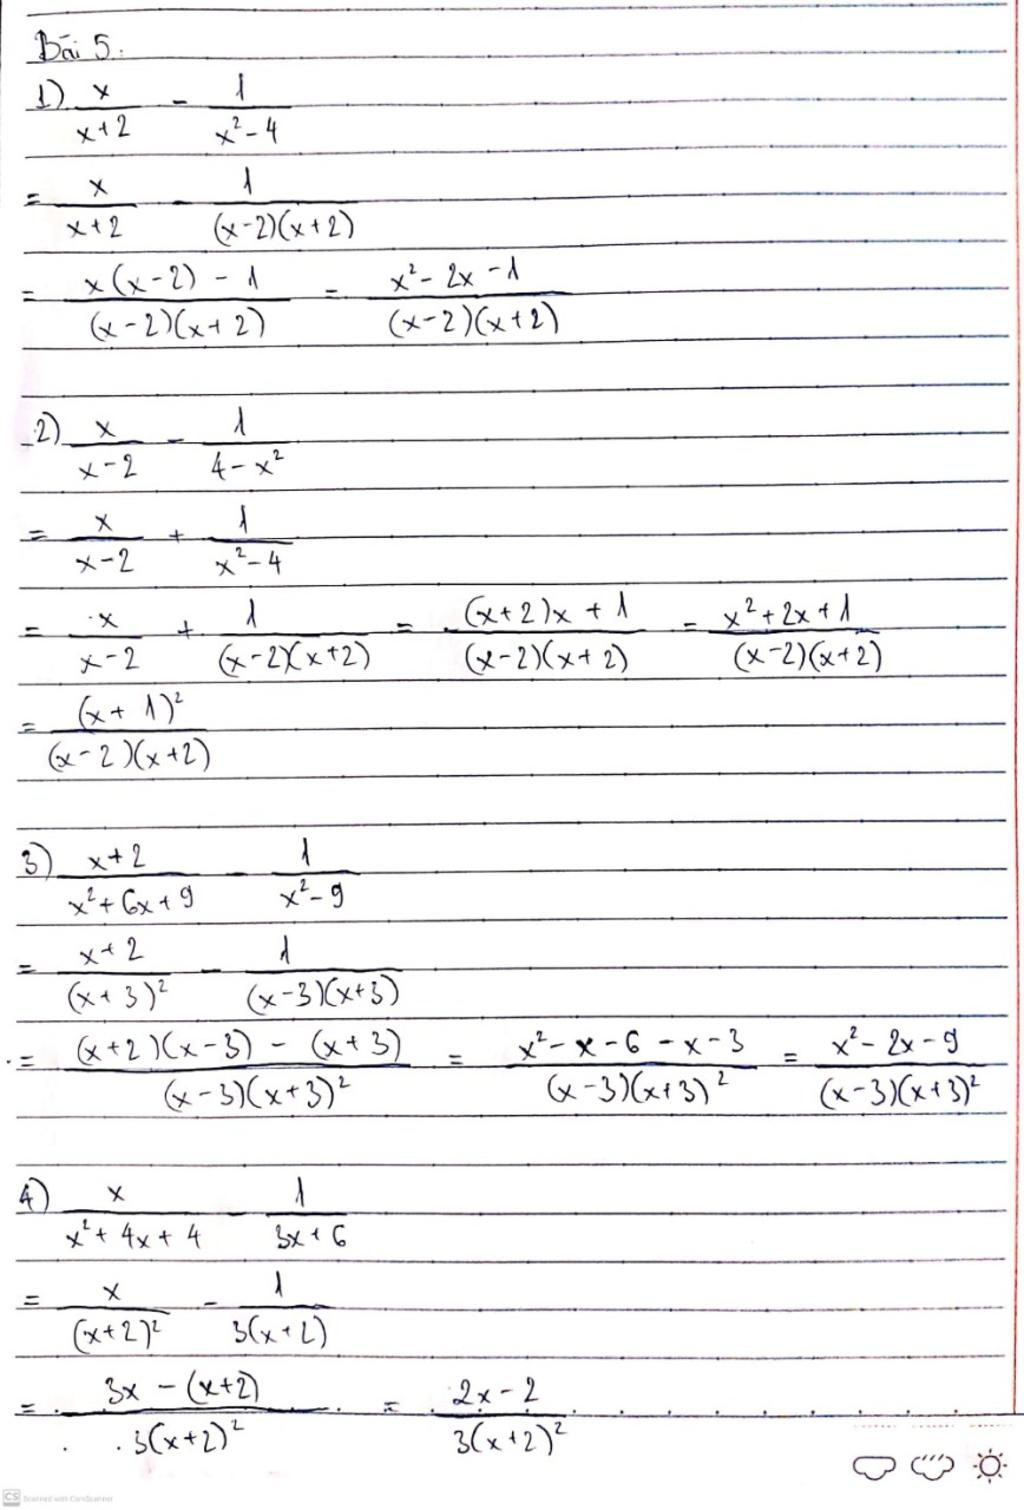 Bài 5:
1) x/(x+2) - 1/(x²-4)
= x/(x+2) - 1/((x-2)(x+2))
= (x(x-2) - 1)/((x-2)(x+2)) = (x² - 2x - 1)/((x-2)(x+2))
2) x/(x-2) - 1/(4-x²)
= x/(x-2) + 1/(x²-4)
= x/(x-2) + 1/((x-2)(x+2)) = ((x+2)x + 1)/((x-2)(x+2)) = (x² + 2x + 1)/((x-2)(x+2))
= (x+1)²/((x-2)(x+2))
3) (x+2)/(x² + 6x + 9) - 1/(x²-9)
= (x+2)/(x+3)² - 1/((x-3)(x+3))
= ((x+2)(x-3) - (x+3))/((x-3)(x+3)²) = (x² - x - 6 - x - 3)/((x-3)(x+3)²) = (x² - 2x - 9)/((x-3)(x+3)²)
4) x/(x² + 4x + 4) - 1/(3x+6)
= x/(x+2)² - 1/(3(x+2))
= (3x - (x+2))/(3(x+2)²) = (2x-2)/(3(x+2)²)
CS Scanned with CamScanner